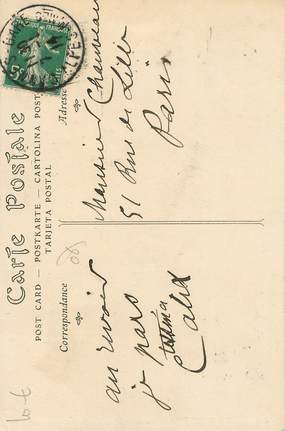 Carte Postale
POST CARD — POSTKARTE — CARTOLINA POSTALE
TARJETA POSTAL
Correspondance
Adresse
au revoir
je pars
Calix
Monsieur Chauveau
51 Rue de Lille
Paris